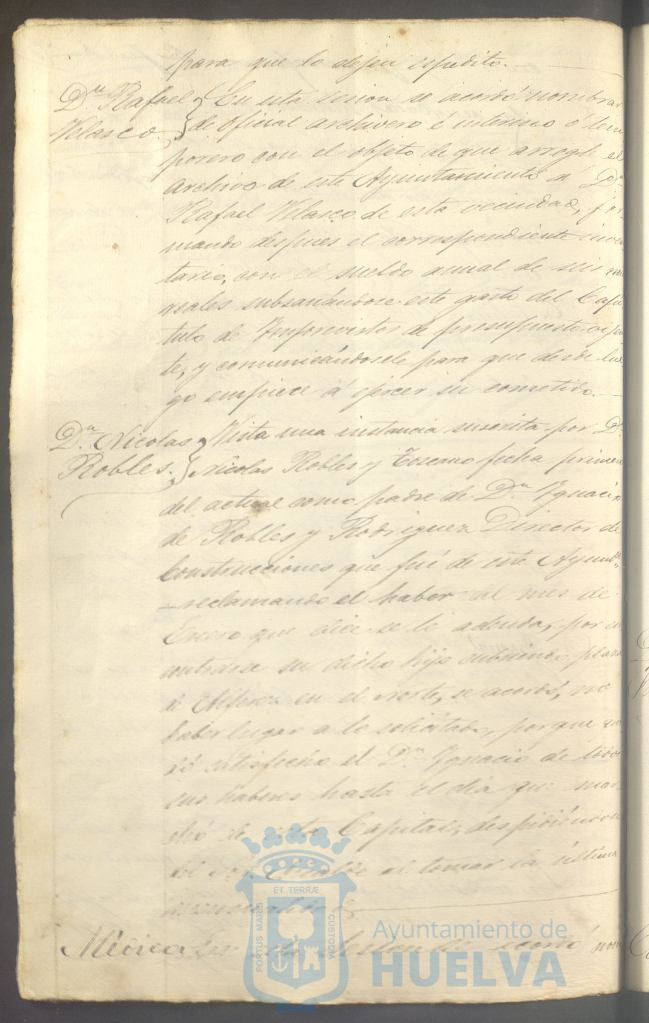 para que lo dejen espedito.
Dn. Rafael Velasco. En esta sesion se acordó nombrar
de oficial archivero é interino ó tem
porero con el objeto de que arregle el
archivo de este Ayuntamiento á Dn.
Rafael Velasco de esta vecindad, for
mando despues el correspondiente inven
tario, con el sueldo anual de seis mil
reales subsanándose este gasto del Capi
tulo de Imprevistos de presupuesto vijen
te, y comunicándosele para que desde lue
go empiece á ejercer su cometido.
Dn. Nicolas Robles. Vista una instancia suscrita por Dn.
Nicolas Robles y Toscano fecha primero
del actual como padre de Dn. Ygnacio
de Robles y Rodriguez Director de
Construcciones que fué de este Ayunto.
reclamando el haber del mes de
Enero que dice se le adeuda, por en
contrarse su dicho hijo cubriendo plaza
de Alferez en el Norte, se acordó, no
haber lugar á lo solicitado, porque que
dó satisfecho el Dn. Ygnacio de todos
sus haberes hasta el dia que mar
chó de esta Capital, despidiéndose
del Sor. Alcalde al tomar la última
Música. En esta sesion se acordó nom
PORTUS MARIS
ET TERRÆ
CUSTODIA
Ayuntamiento de
HUELVA